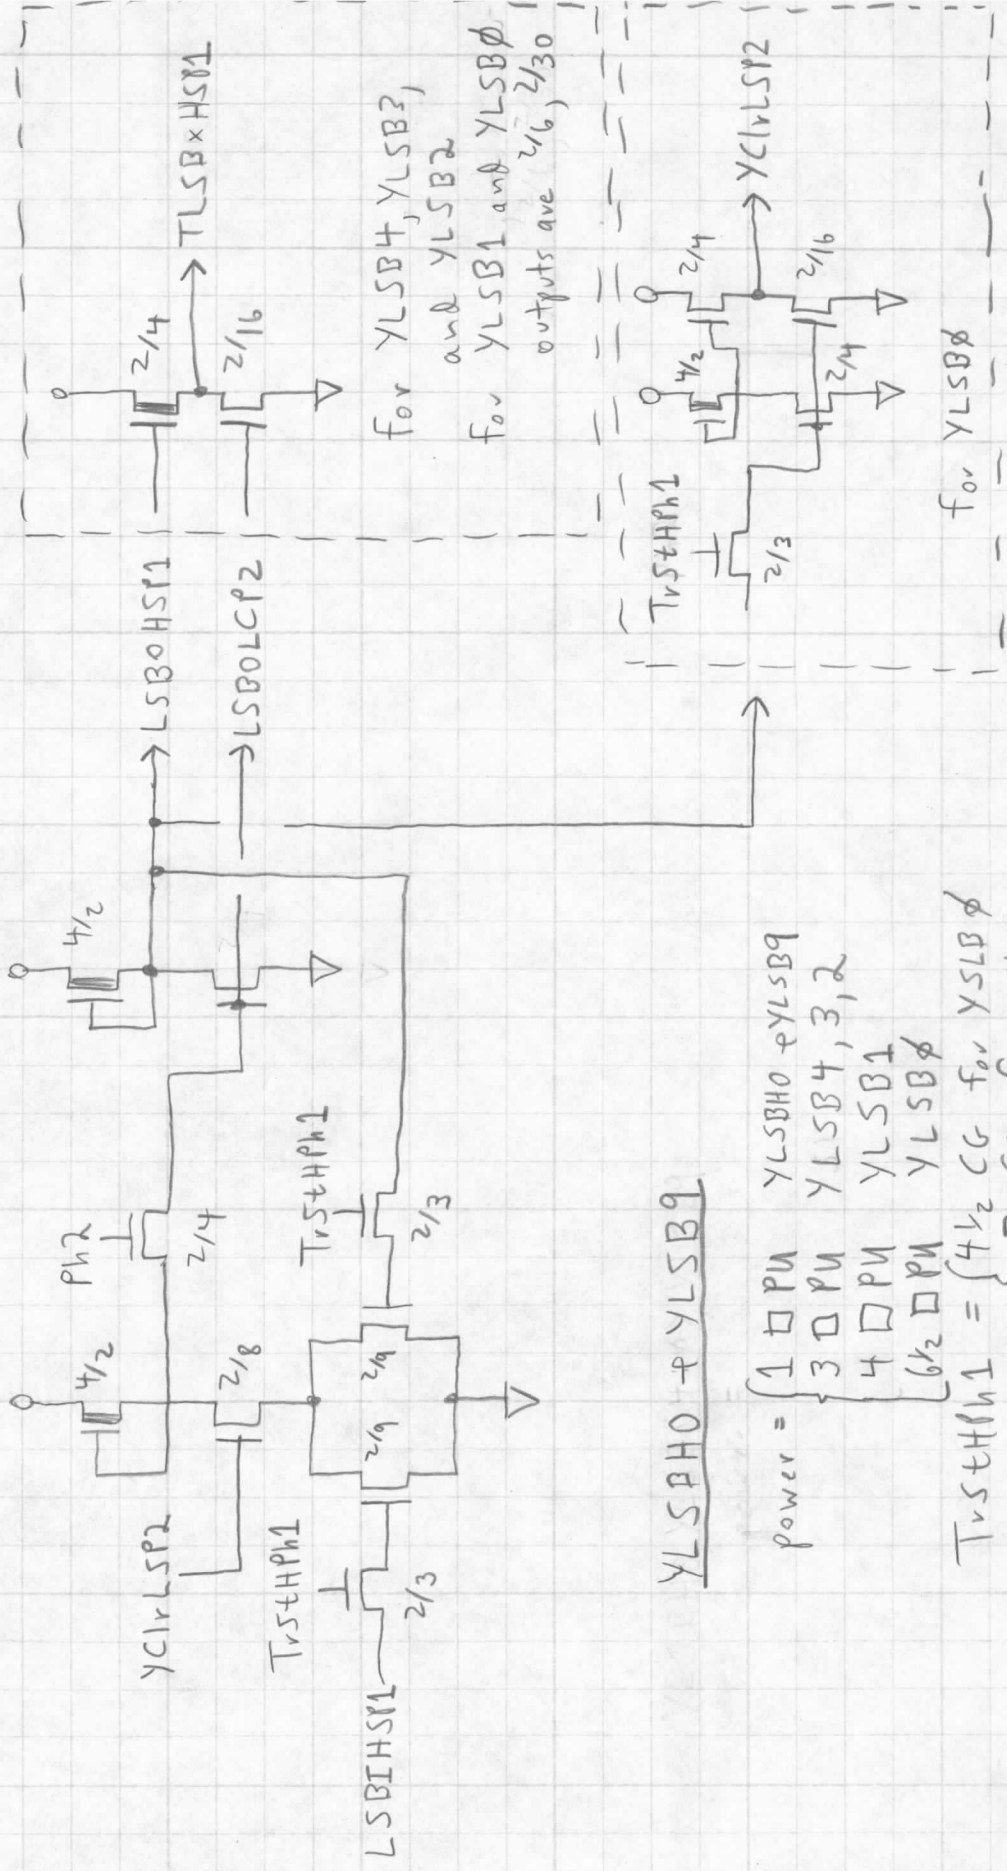 YClrLSP2
4/2
2/8
Ph2
2/4
4/2
LSBOHSP1
LSBOLCP2
TrStHPh1
LSBIHSP1
2/3
2/9
2/9
TrStHPh1
2/3
2/4
2/16
TLSBxHSP1
for YLSB4, YLSB3,
and YLSB2
for YLSB1 and YLSBØ
outputs are 2/6, 2/30
TrStHPh1
2/3
4/2
2/4
2/4
2/16
YClrLSP2
for YLSBØ
YLSBHO + YLSB9
power = { 1 □ PU YLSBHO + YLSB9
3 □ PU YLSB4, 3, 2
4 □ PU YLSB1
6½ □ PU YLSBØ
TrStHPh1 = { 4½ CG for YSLBØ